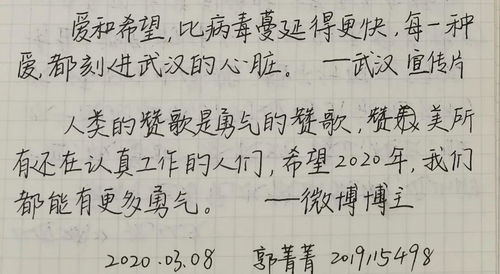 爱和希望,比病毒蔓延得更快,每一种
爱,都刻进武汉的心脏。 ——武汉 宣传片
人类的赞歌是勇气的赞歌,赞美所
有还在认真工作的人们,希望2020年,我们
都能有更多勇气。 ——微博博主
2020.03.08 郭菁菁 2019115498